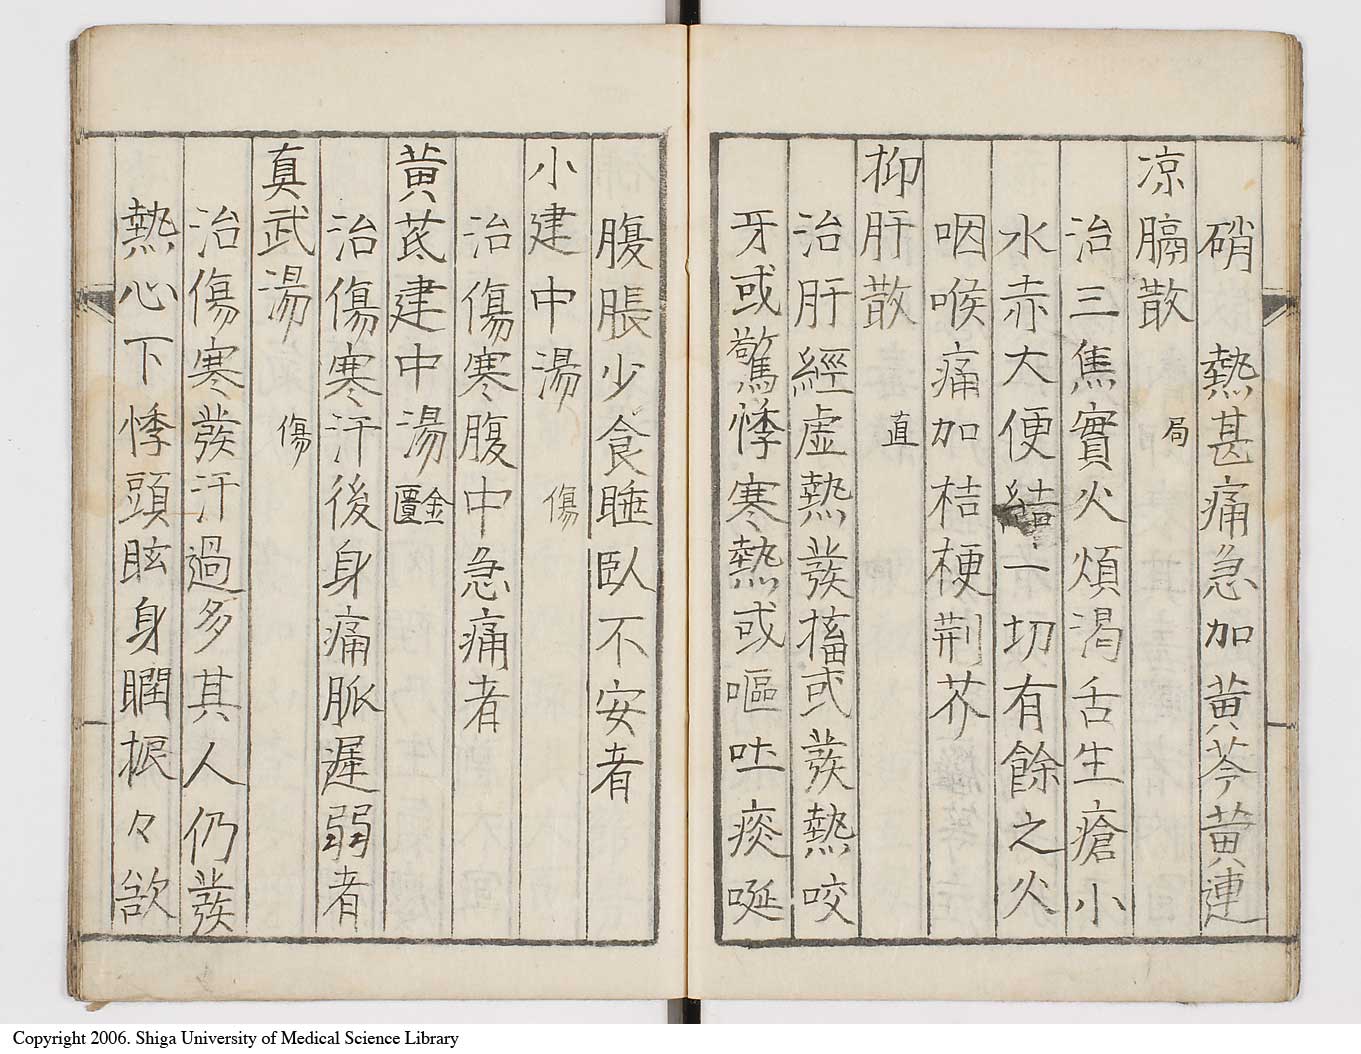 硝 熱甚痛急加黄芩黄連
凉膈散 局
治三焦實火煩渴舌生瘡小
水赤大便結一切有餘之火
咽喉痛加桔梗荆芥
抑肝散 直
治肝經虚熱發搐或發熱咬
牙或驚悸寒熱或嘔吐痰唌
腹脹少食睡臥不安者
小建中湯 傷
治傷寒腹中急痛者
黄茋建中湯 金匱
治傷寒汗後身痛脈遲弱者
真武湯 傷
治傷寒發汗過多其人仍發
熱心下悸頭眩身瞤振々欲
Copyright 2006. Shiga University of Medical Science Library